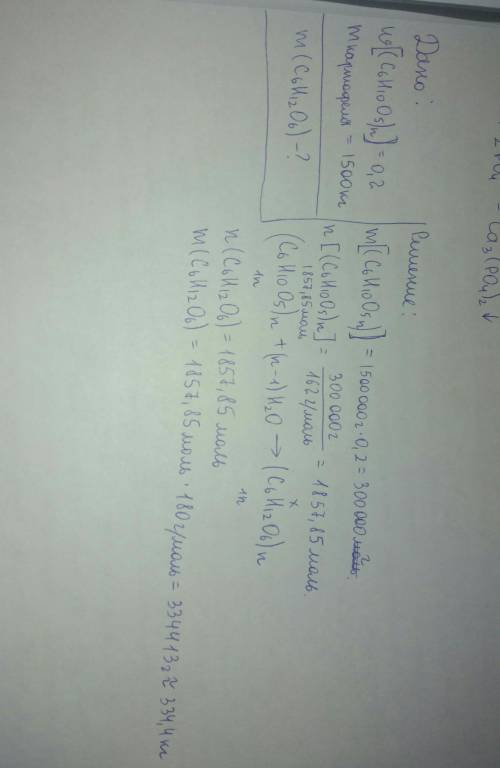 Ca₃(PO₄)₂↓
Дано:
ω[(C₆H₁₀O₅)n] = 0,2
m картофеля = 1500 кг
m(C₆H₁₂O₆) - ?
Решение:
m[(C₆H₁₀O₅n)] = 1500 000г · 0,2 = 300 000 г.
n[(C₆H₁₀O₅)n] = 300 000г / 162 г/моль = 1857,85 моль.
1857,85 моль x
(C₆H₁₀O₅)n + (n-1)H₂O → (C₆H₁₂O₆)n
1n 1n
n(C₆H₁₂O₆) = 1857,85 моль
m(C₆H₁₂O₆) = 1857,85 моль · 180 г/моль = 334413 г ≈ 334,4 кг